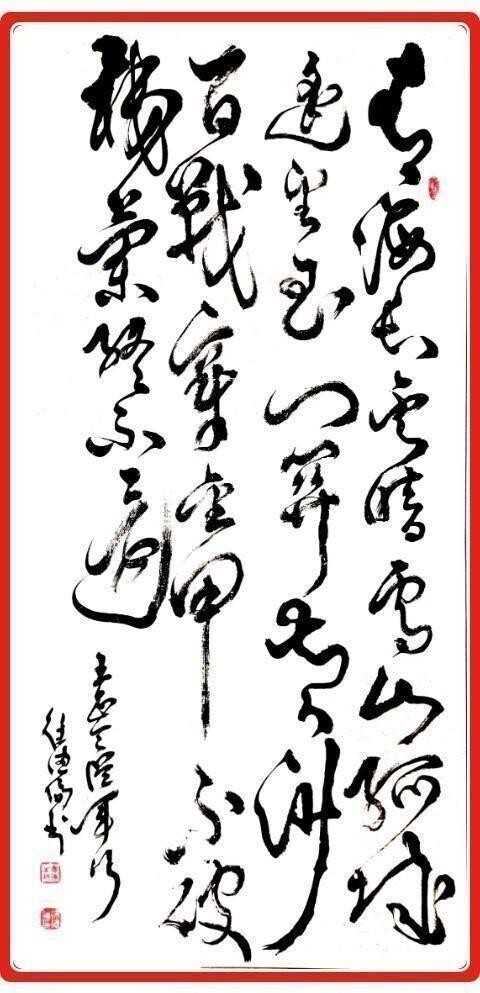 青海長雲暗雪山孤城
遥望玉門關黄沙
百戰穿金甲不破
樓蘭終不還
王昌齡從軍行
書